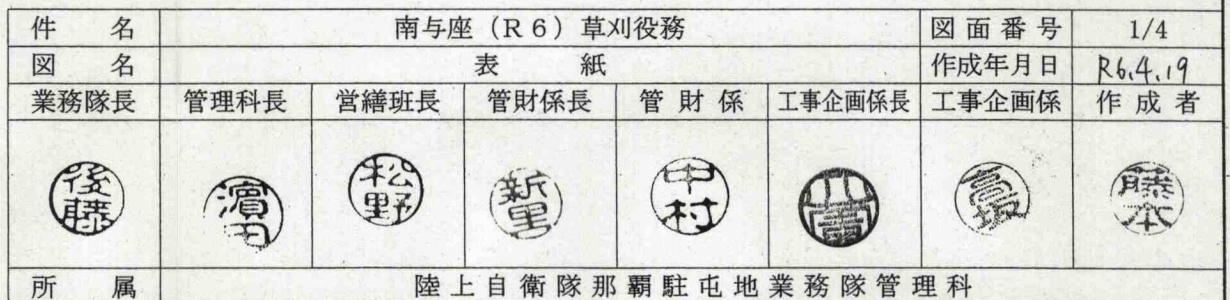 件名 南与座（R6）草刈役務 図面番号 1/4
図名 表紙 作成年月日 R6.4.19
業務隊長 管理科長 営繕班長 管財係長 管財係 工事企画係長 工事企画係 作成者
後藤 濵田 松野 新里 中村 藤本
所属 陸上自衛隊那覇駐屯地業務隊管理科